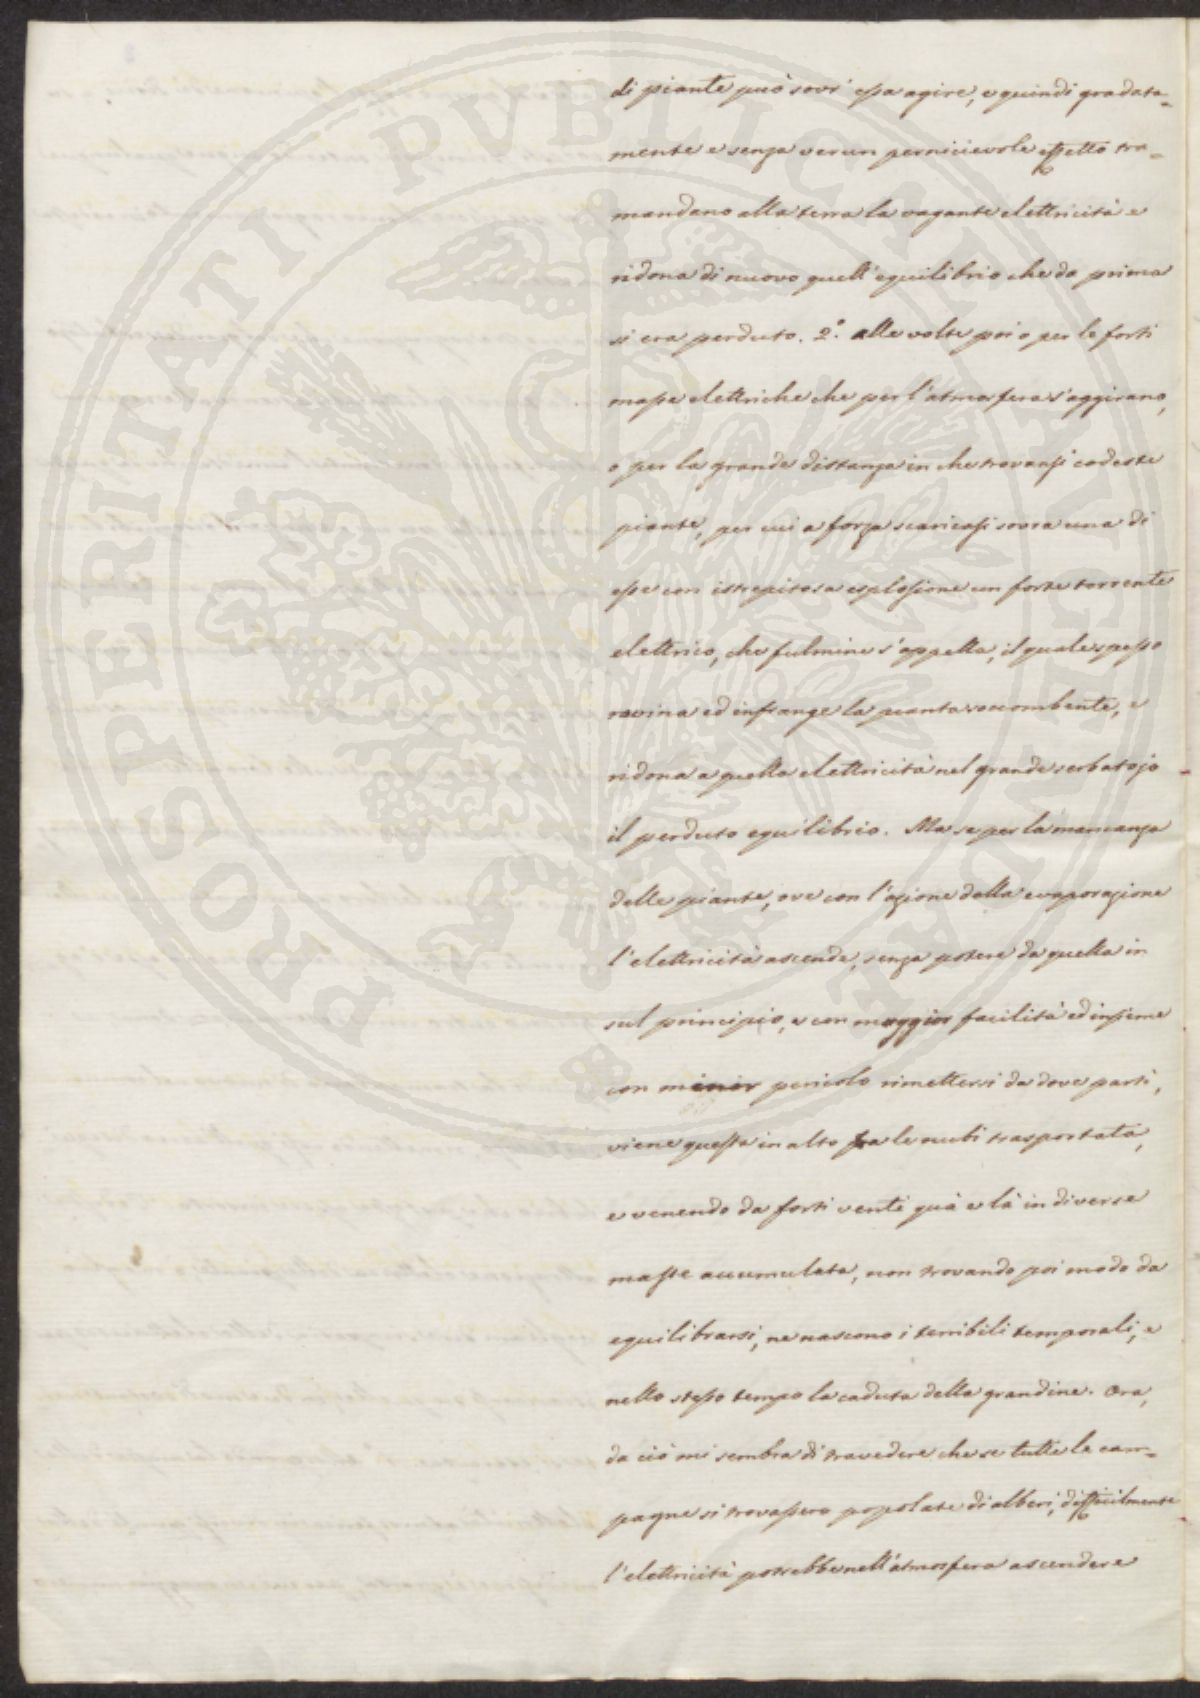 di piante può sovr' essa agire, e quindi gradata-
mente e senza verun pernicievole effetto tra-
mandano alla terra la vagante elettricità e
ridona di nuovo quell'equilibrio che da prima
si era perduto. 2.° alle volte poi o per le forti
masse elettriche che per l'atmosfera s'aggirano,
o per la grande distanza in che trovansi codeste
piante, per cui a forza scaricasi sovra una di
esse con istrepitosa esplosione un forte torrente
elettrico, che fulmine s'appella, il quale spesso
rovina ed infrange la pianta soccombente, e
ridona a quella elettricità nel grande serbatojo
il perduto equilibrio. Ma se per la mancanza
delle piante, ove con l'azione della evaporazione
l'elettricità ascende, senza potere da quella in
sul principio, e con maggior facilità ed insieme
con minor pericolo rimettersi da dove partì,
viene questa in alto fra le nubi trasportata,
e venendo da forti venti quà e là in diverse
masse accumulata, non trovando poi modo da
equilibrarsi, ne nascono i terribili temporali, e
nello stesso tempo la caduta della grandine. Ora,
da ciò mi sembra di travedere che se tutte le cam-
pagne si trovassero popolate di alberi, difficilmente
l'elettricità potrebbe nell'atmosfera ascendere
PROSPERITATI PVBLICAE AVGENDAE